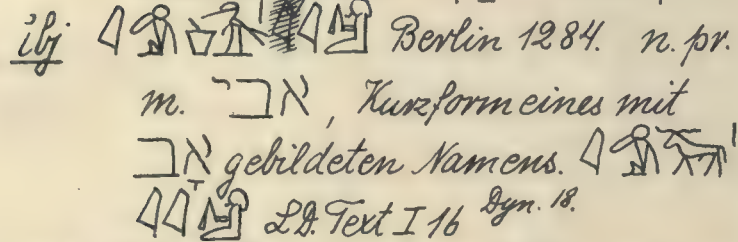 ỉbj Berlin 1284. n. pr.
m. אבי, Kurzform eines mit
אב gebildeten Namens.
L.D. Text I 16 Dyn. 18.